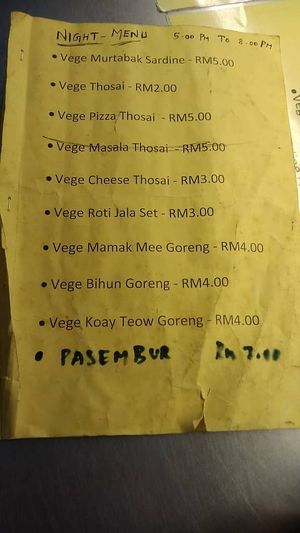 NIGHT - MENU 5.00 PM TO 8.00 PM
• Vege Murtabak Sardine - RM5.00
• Vege Thosai - RM2.00
• Vege Pizza Thosai - RM5.00
• Vege Masala Thosai - RM5.00
• Vege Cheese Thosai - RM3.00
• Vege Roti Jala Set - RM3.00
• Vege Mamak Mee Goreng - RM4.00
• Vege Bihun Goreng - RM4.00
• Vege Koay Teow Goreng - RM4.00
• PASEMBUR RM 7.00